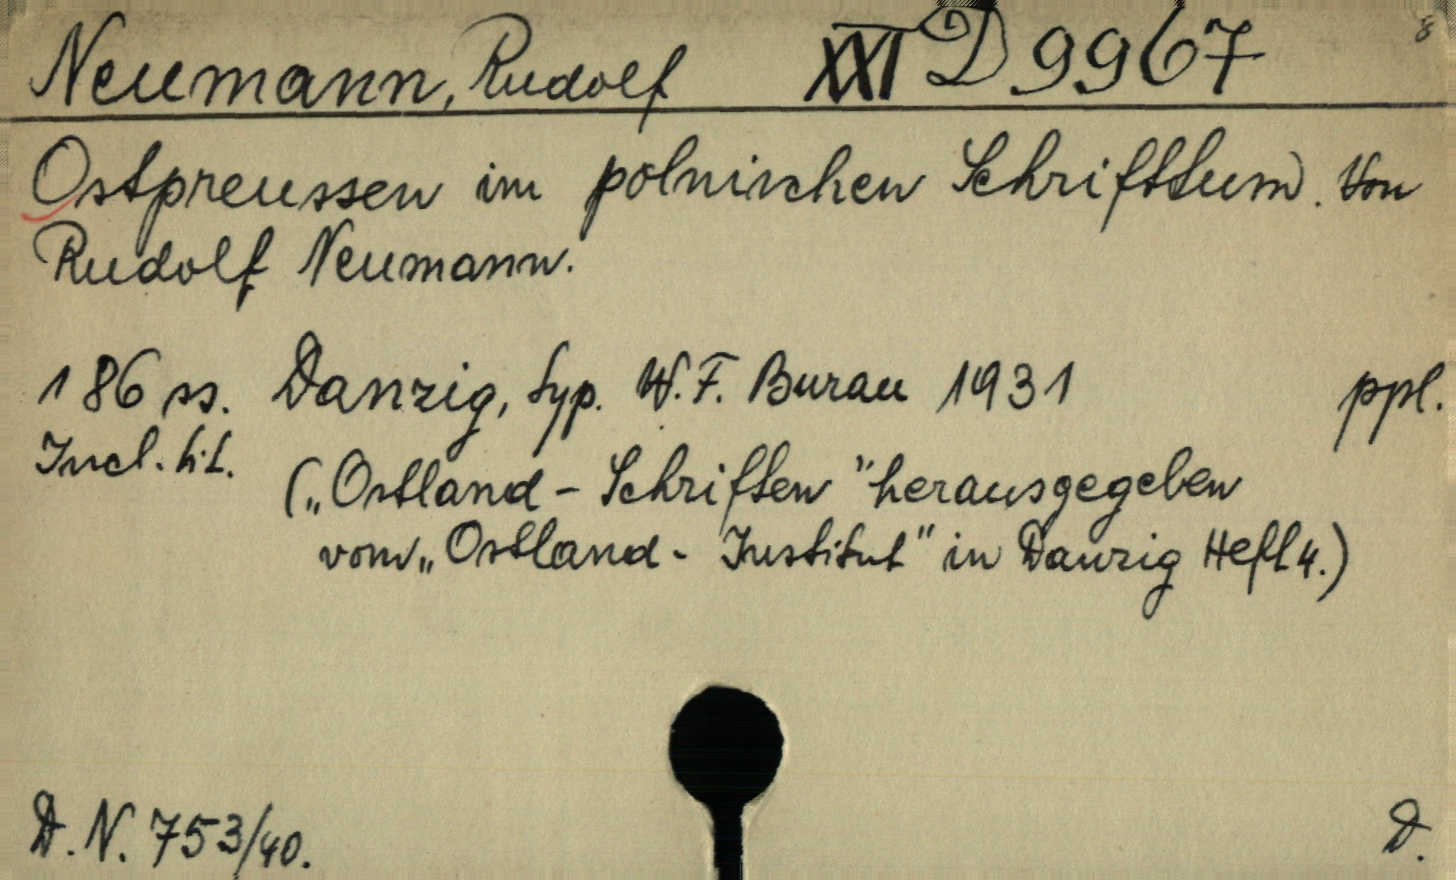 Neumann, Rudolf XXI D 9967 8
Ostpreussen im polnischen Schrifttum. Von
Rudolf Neumann.
186 ss. Danzig, typ. W. F. Burau 1931 ppl.
Incl. tit.
(„Ostland - Schriften" herausgegeben
vom „Ostland - Institut" in Danzig Heft 4.)
D. N. 753/40. D.